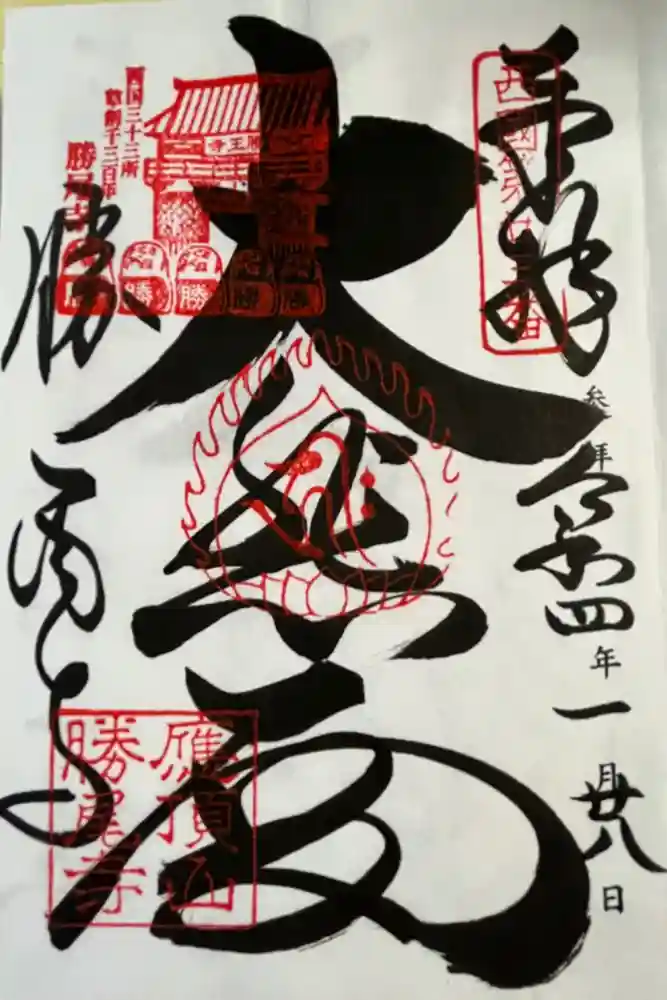 奉拝
西國第廿三番
令和四年一月廿八日
大悲殿
西国三十三所
草創千三百年
勝尾寺
勝王寺
勝
勝
勝
勝
勝
勝尾寺
應頂山
勝尾寺